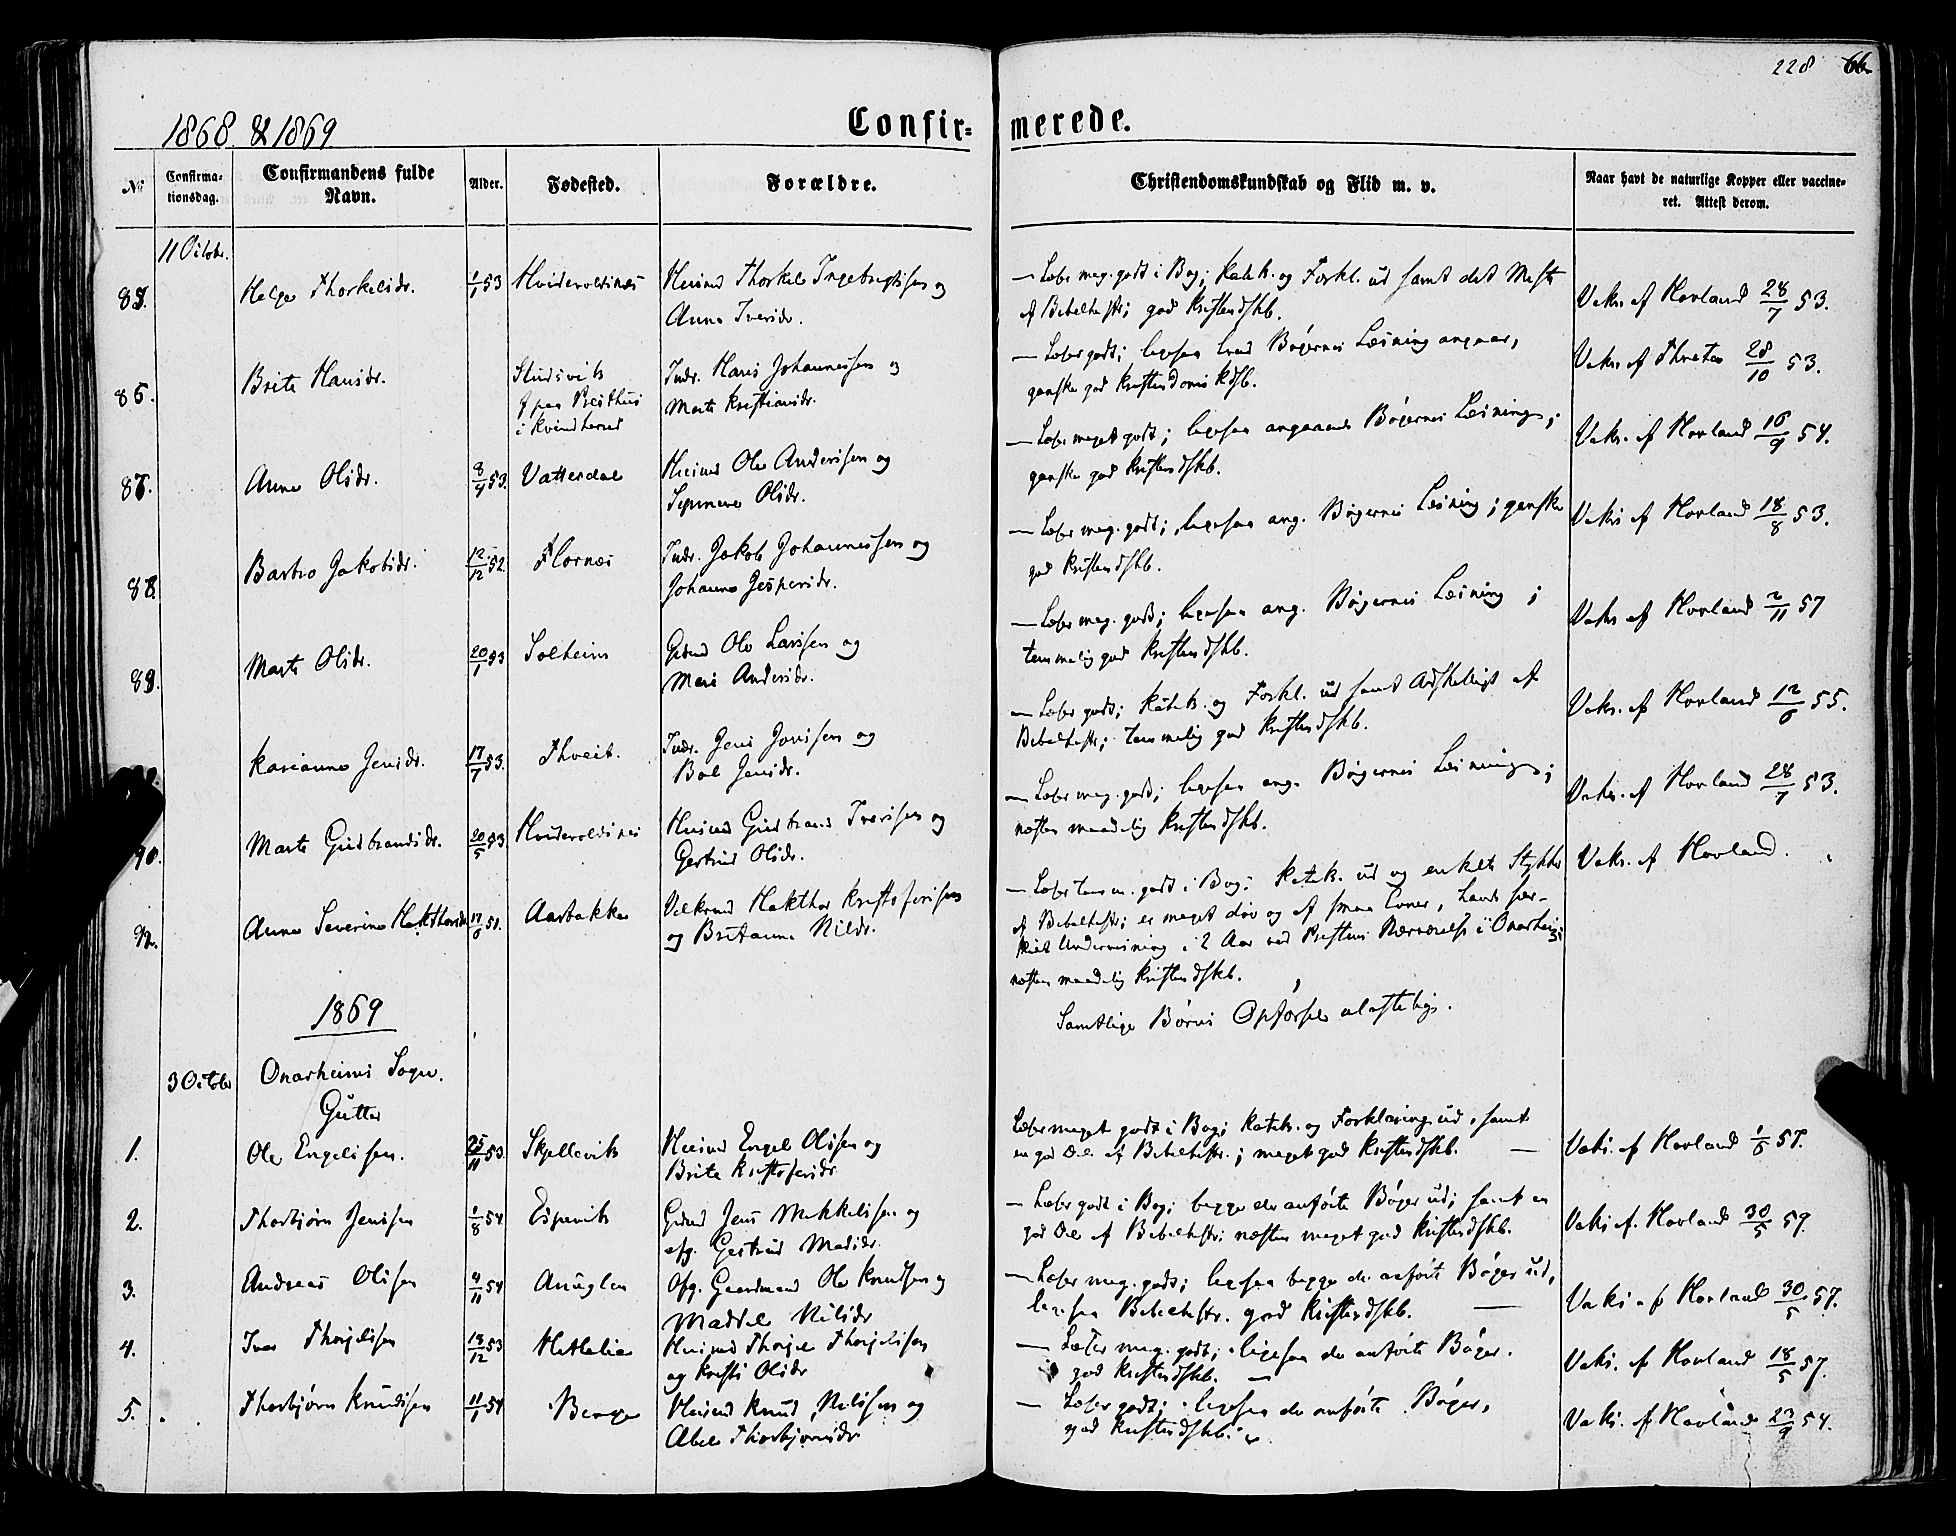 228 66
1868 & 1869
Confir=
merede.
No
Confirma-
tionsdag.
Confirmandens fulde
Navn.
Alder.
Fødested.
Forældre.
Christendomskundskab og Flid m. v.
Naar havt de naturlige Kopper eller vaccine-
ret. Attest derom.
11 Octobr.
Helge Thorkelsdr. 1/1 53 Hviderodsnæs Huusmd Thorkel Ingebrigtsen og
Anna Iversdr.
— Læser meg. godt i Bog; Katek. og Forkl. ud samt det Meste
af Bibelhistr; god Kristendskb.
Vaks. af Hovland 28/7 53.
85. Brite Hansdr.
i Kvindherred
Indr. Hans Johannessen og
Marta Kristiansdr.
— Læser godt; ligesaa hvad Bøgernes Læsning angaaer,
ganske god Kristendoms Kdsk.
Vaks. af 28/10 53.
87. Anna Olsdr. 8/4 53. Vatterdal Huusmd Ole Andersen og
Olsdr.
— Læser meget godt; ligesaa angaaende Bøgernes Læsning;
ganske god Kristendskb.
Vaks. af Hovland 16/9 54.
88. Barbro Jakobsdr. 12/12 52. Flornes Indr. Jakob Johannessen og
Johanna Jespersdr.
— Læser meg. godt; ligesaa ang. Bøgernes Læsning; ganske
god Kristendskb.
Vaks af Hovland 18/8 53.
89. Marta Olsdr. 20/1 53 Solheim Grmd Ole Larsen og
Mari Andersdr.
— Læser meg. godt; ligesaa ang. Bøgernes Læsning;
temmelig god Kristendskb.
Vaks af Hovland 2/11 57
Karianna Jensdr. 17/7 53. Thveit. Indr. Jens Jonsen og
Jensdr.
— Læser godt; Katek. og Forkl. ud samt Adskilligt af
Bibelhistr; temmelig god Kristendskb.
Vaks. af Hovland 12/6 55.
90. Marta Gudbrandsdr. 20/5 53 Hviderodsnes Huusmd Gudbrand Iversen og
Gertrud Olsdr.
— Læser meg. godt; ligesaa ang. Bøgernes Læsning;
næsten maadelig Kristendskb.
Vaks. af Hovland 28/7 53.
Anna Severine 51. Aarbakka Kristofersen
og Britanna Nilsdr.
— Læser tem. godt i Bog; Katek. ud og enkelte Stykker
af Bibelhistr; er meget døv og af smaa Evner, havt sær-
skilt Underviisning i 2 Aar ved Prestens Nærværelse i Onarheim;
næsten maadelig Kristendskb.
Vaks. af Hovland.
Samtlige Børns Opførsel ulastelig.
1869
3 October Onarheims Sogn.
Gutter
1. Ole Engelsen. 25/11 53. Skjellevik Huusmd Engel Olsen og
Brita Kristofersdr
Læser meget godt i Bog; Katek. og Forklaring ud, samt
en god Del af Bibelhistr.; meget god Kristendskb. —
Vaks. af Hovland 57.
2. Thorbjørn Jensen 1/8 54 Espevik Grmd Jens Mikkelsen og
afg. Gertrud Madsdr.
— Læser godt i Bog; begge de anførte Bøger ud; samt en
god Del af Bibelhistr; næsten meget god Kristendskb.
Vaks af. Hovland 30/5 59.
3. Andreas Olsen 4/11 54 Anuglen Afg. Gaardmand Ole Knudsen og
Madsdr
— Læser meg. godt; ligesaa begge de anførte Bøger ud,
ligesaa Bibelhistr. god Kristendskb. —
Vaks af Hovland 30/5 57.
4. Iver Thorgilsen 18/12 53 Hetlelien Huusmd Thorgil Thorgilsen
og Kristi Olsdr
— Læser meg. godt; ligesaa de anførte Bøger.
god Kristendskb. —
Vaks. af Hovland 18/5 57.
5. Thorbjørn Knudsen 11/1 54 Berge Huusmd Knud Nilssen og
Abel Thorbjørnsdr
— Læser godt; ligesaa de anførte Bøger,
god Kristendskb.
Vaks. af Hovland 23/9 54.